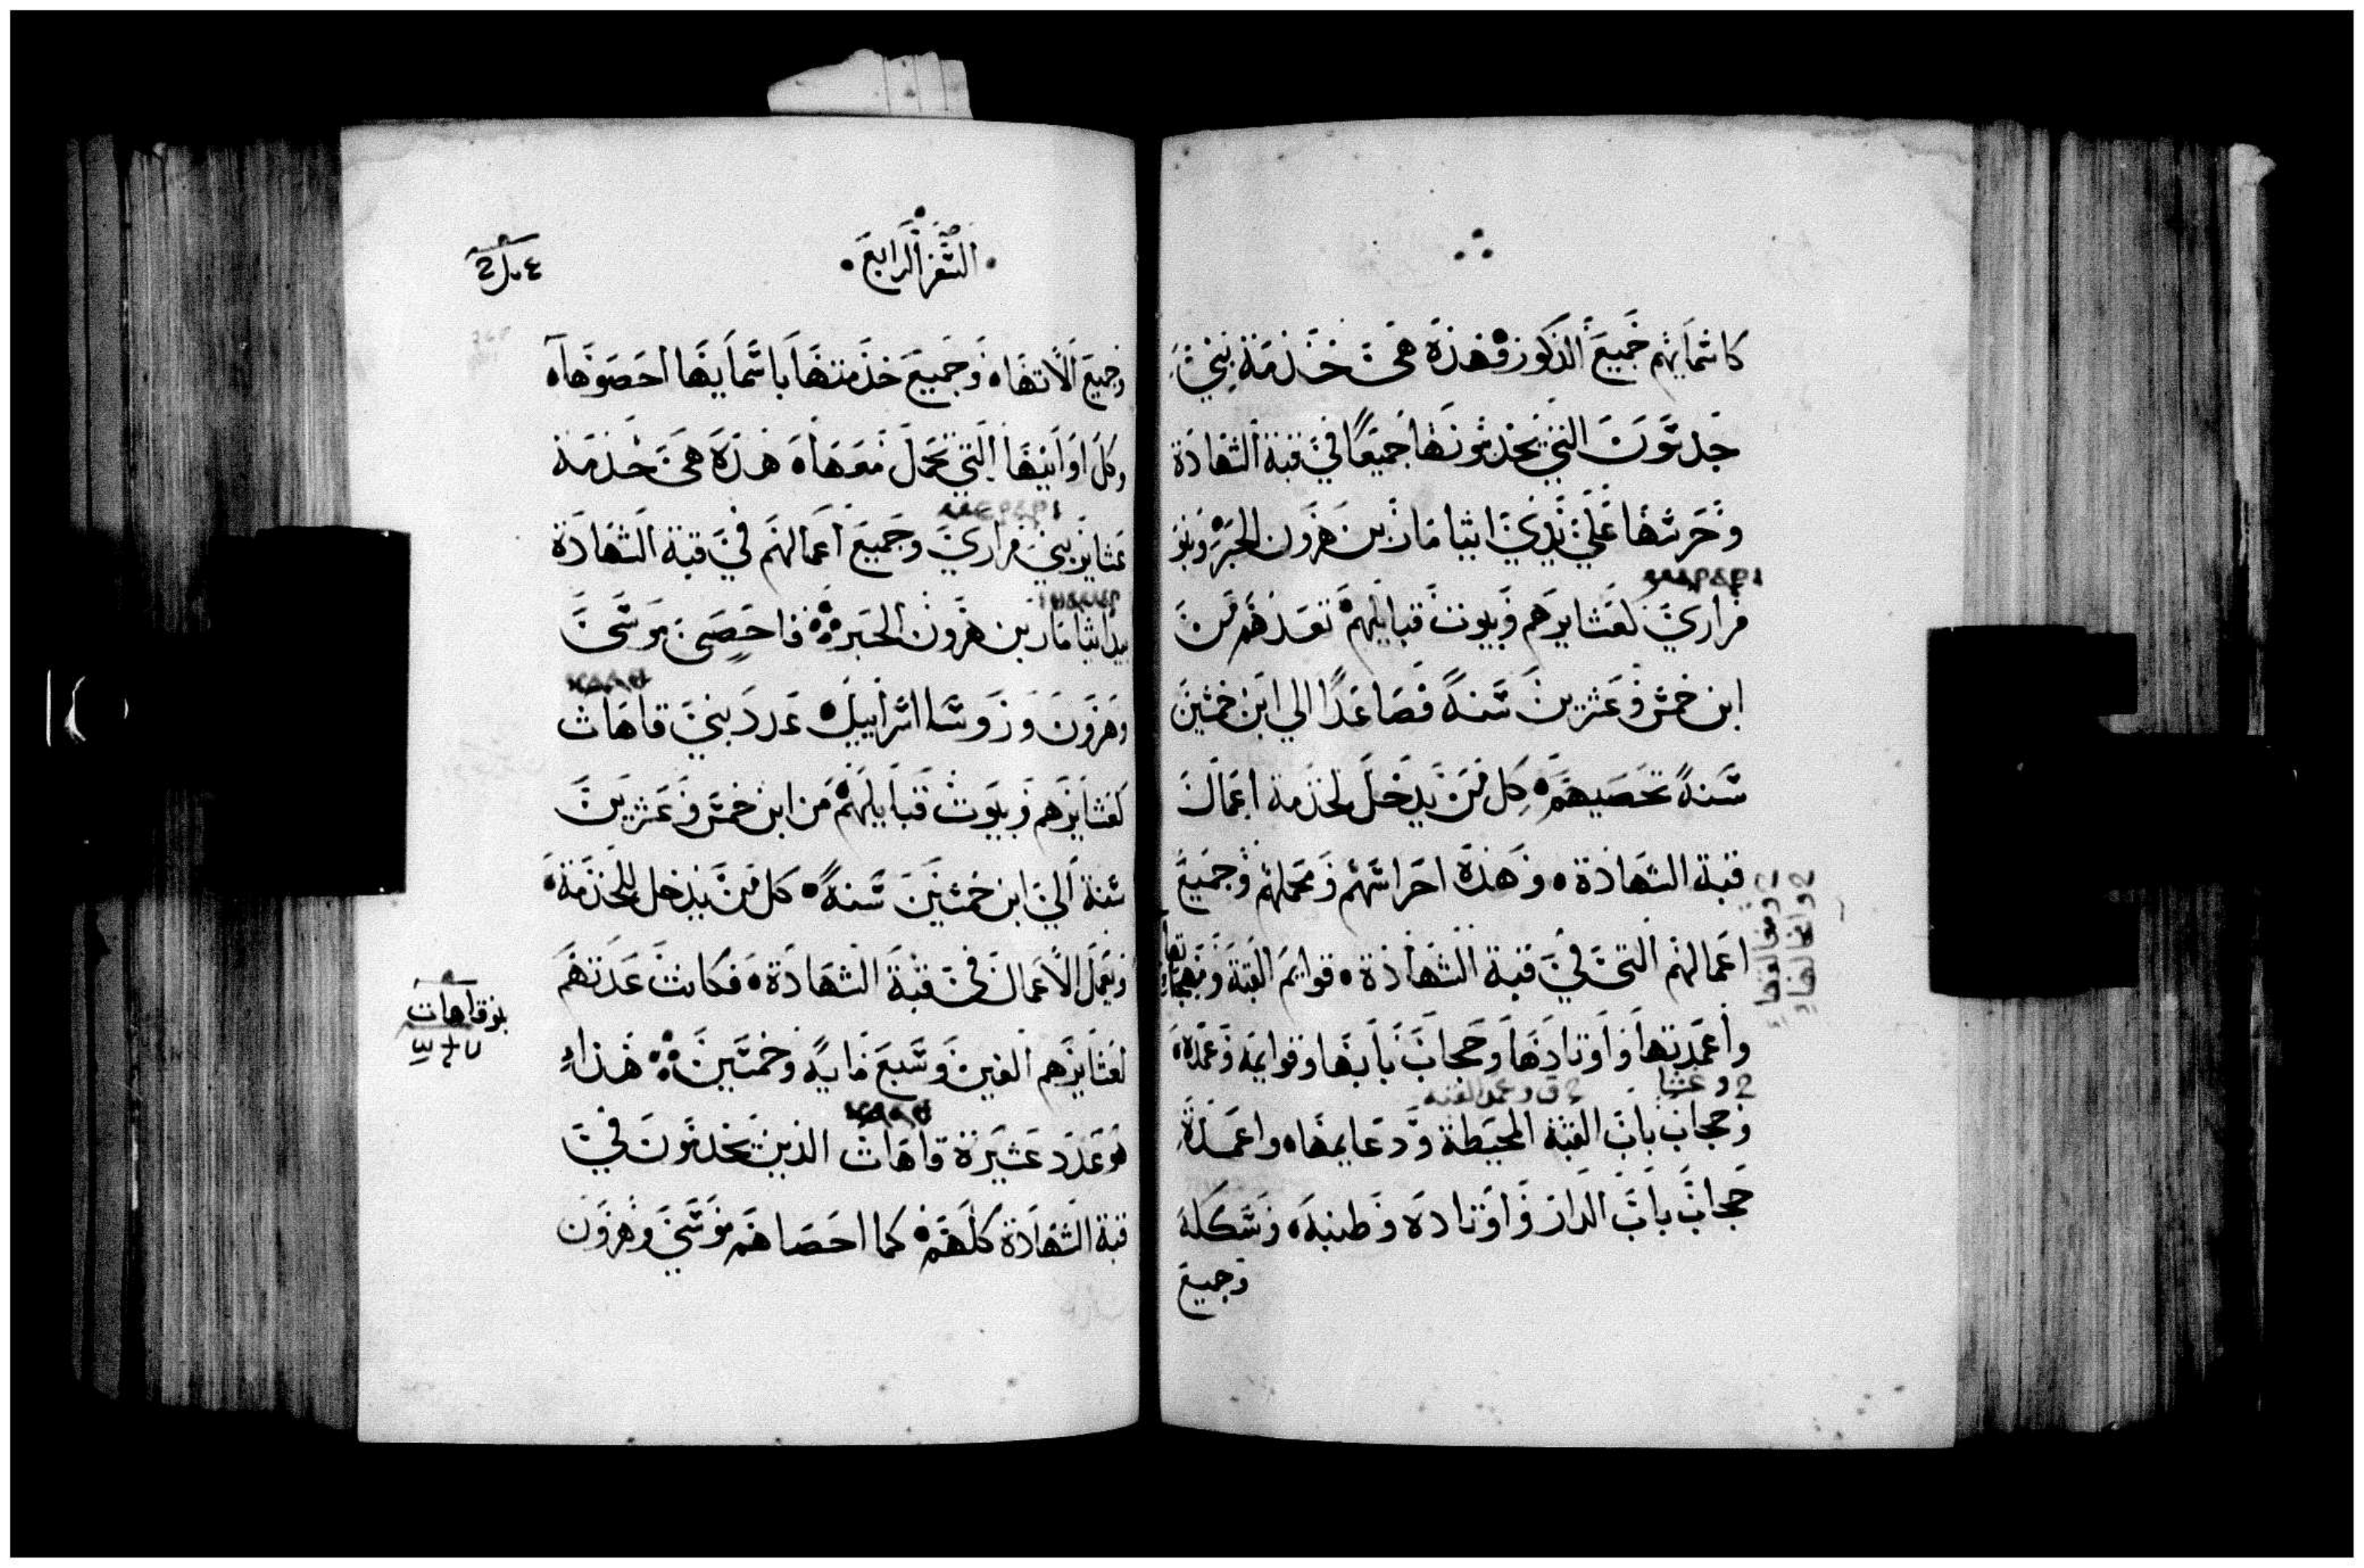 كاسمايهم جميع الذكور فهذه هي خدمة بني
جدسون التي يخدمونها جميعًا في قبة الشهادة
وحرسها علي يدي ايثامار بن هرون الحبر وبنو
مراري لعشايرهم وبيوت قبايلهم تعدهم من
ابن خمس وعشرين سنةً فصاعدًا الي ابن خمسين
سنةً تحصيهم كل من يدخل لخدمة اعمال
قبة الشهادة وهذه احراستهم ومحملهم وجميع
اعمالهم التي في قبة الشهادة قوايم القبة
واعمدتها واوتادها وحجاب بابها وقوايمه وعمده
وحجاب باب القبة المحيطة ودعايمها واعمدة
حجاب باب الدار واوتاده وطنبه وشكله
وجميع
السفر الرابع
وجميع الاتها وجميع خدمتها باسمايها احصوها
وكل اوانيها التي تحمل معها هذه هي خدمة
عشاير بني مراري وجميع اعمالهم في قبة الشهادة
بيد ايثامار بن هرون الحبر فاحصى موسى
وهرون وروسا اسراييل عدد بني قاهاث
لعشايرهم وبيوت قبايلهم من ابن خمس وعشرين
سنة الي ابن خمسين سنةً كل من يدخل للخدمة
ويعمل الاعمال في قبة الشهادة فكانت عدتهم
لعشايرهم الفين وسبع مايه وخمسين هذا
هو عدد عشيرة قاهاث الذين يخدمون في
قبة الشهادة كلهم كما احصاهم موسي وهرون
بنو قاهات